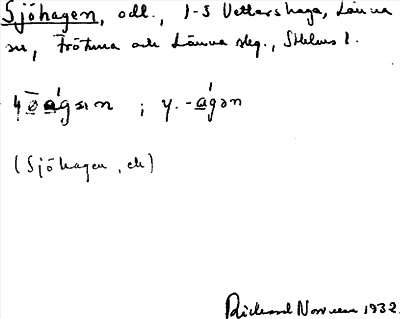 Sjöhagen, odl., 1-5 Vettershaga, Länna
sn, Frötuna och Länna slg., Sthlms l.
; y. -ágən
(Sjöhagen, ek)
Rickard Norrman 1932.